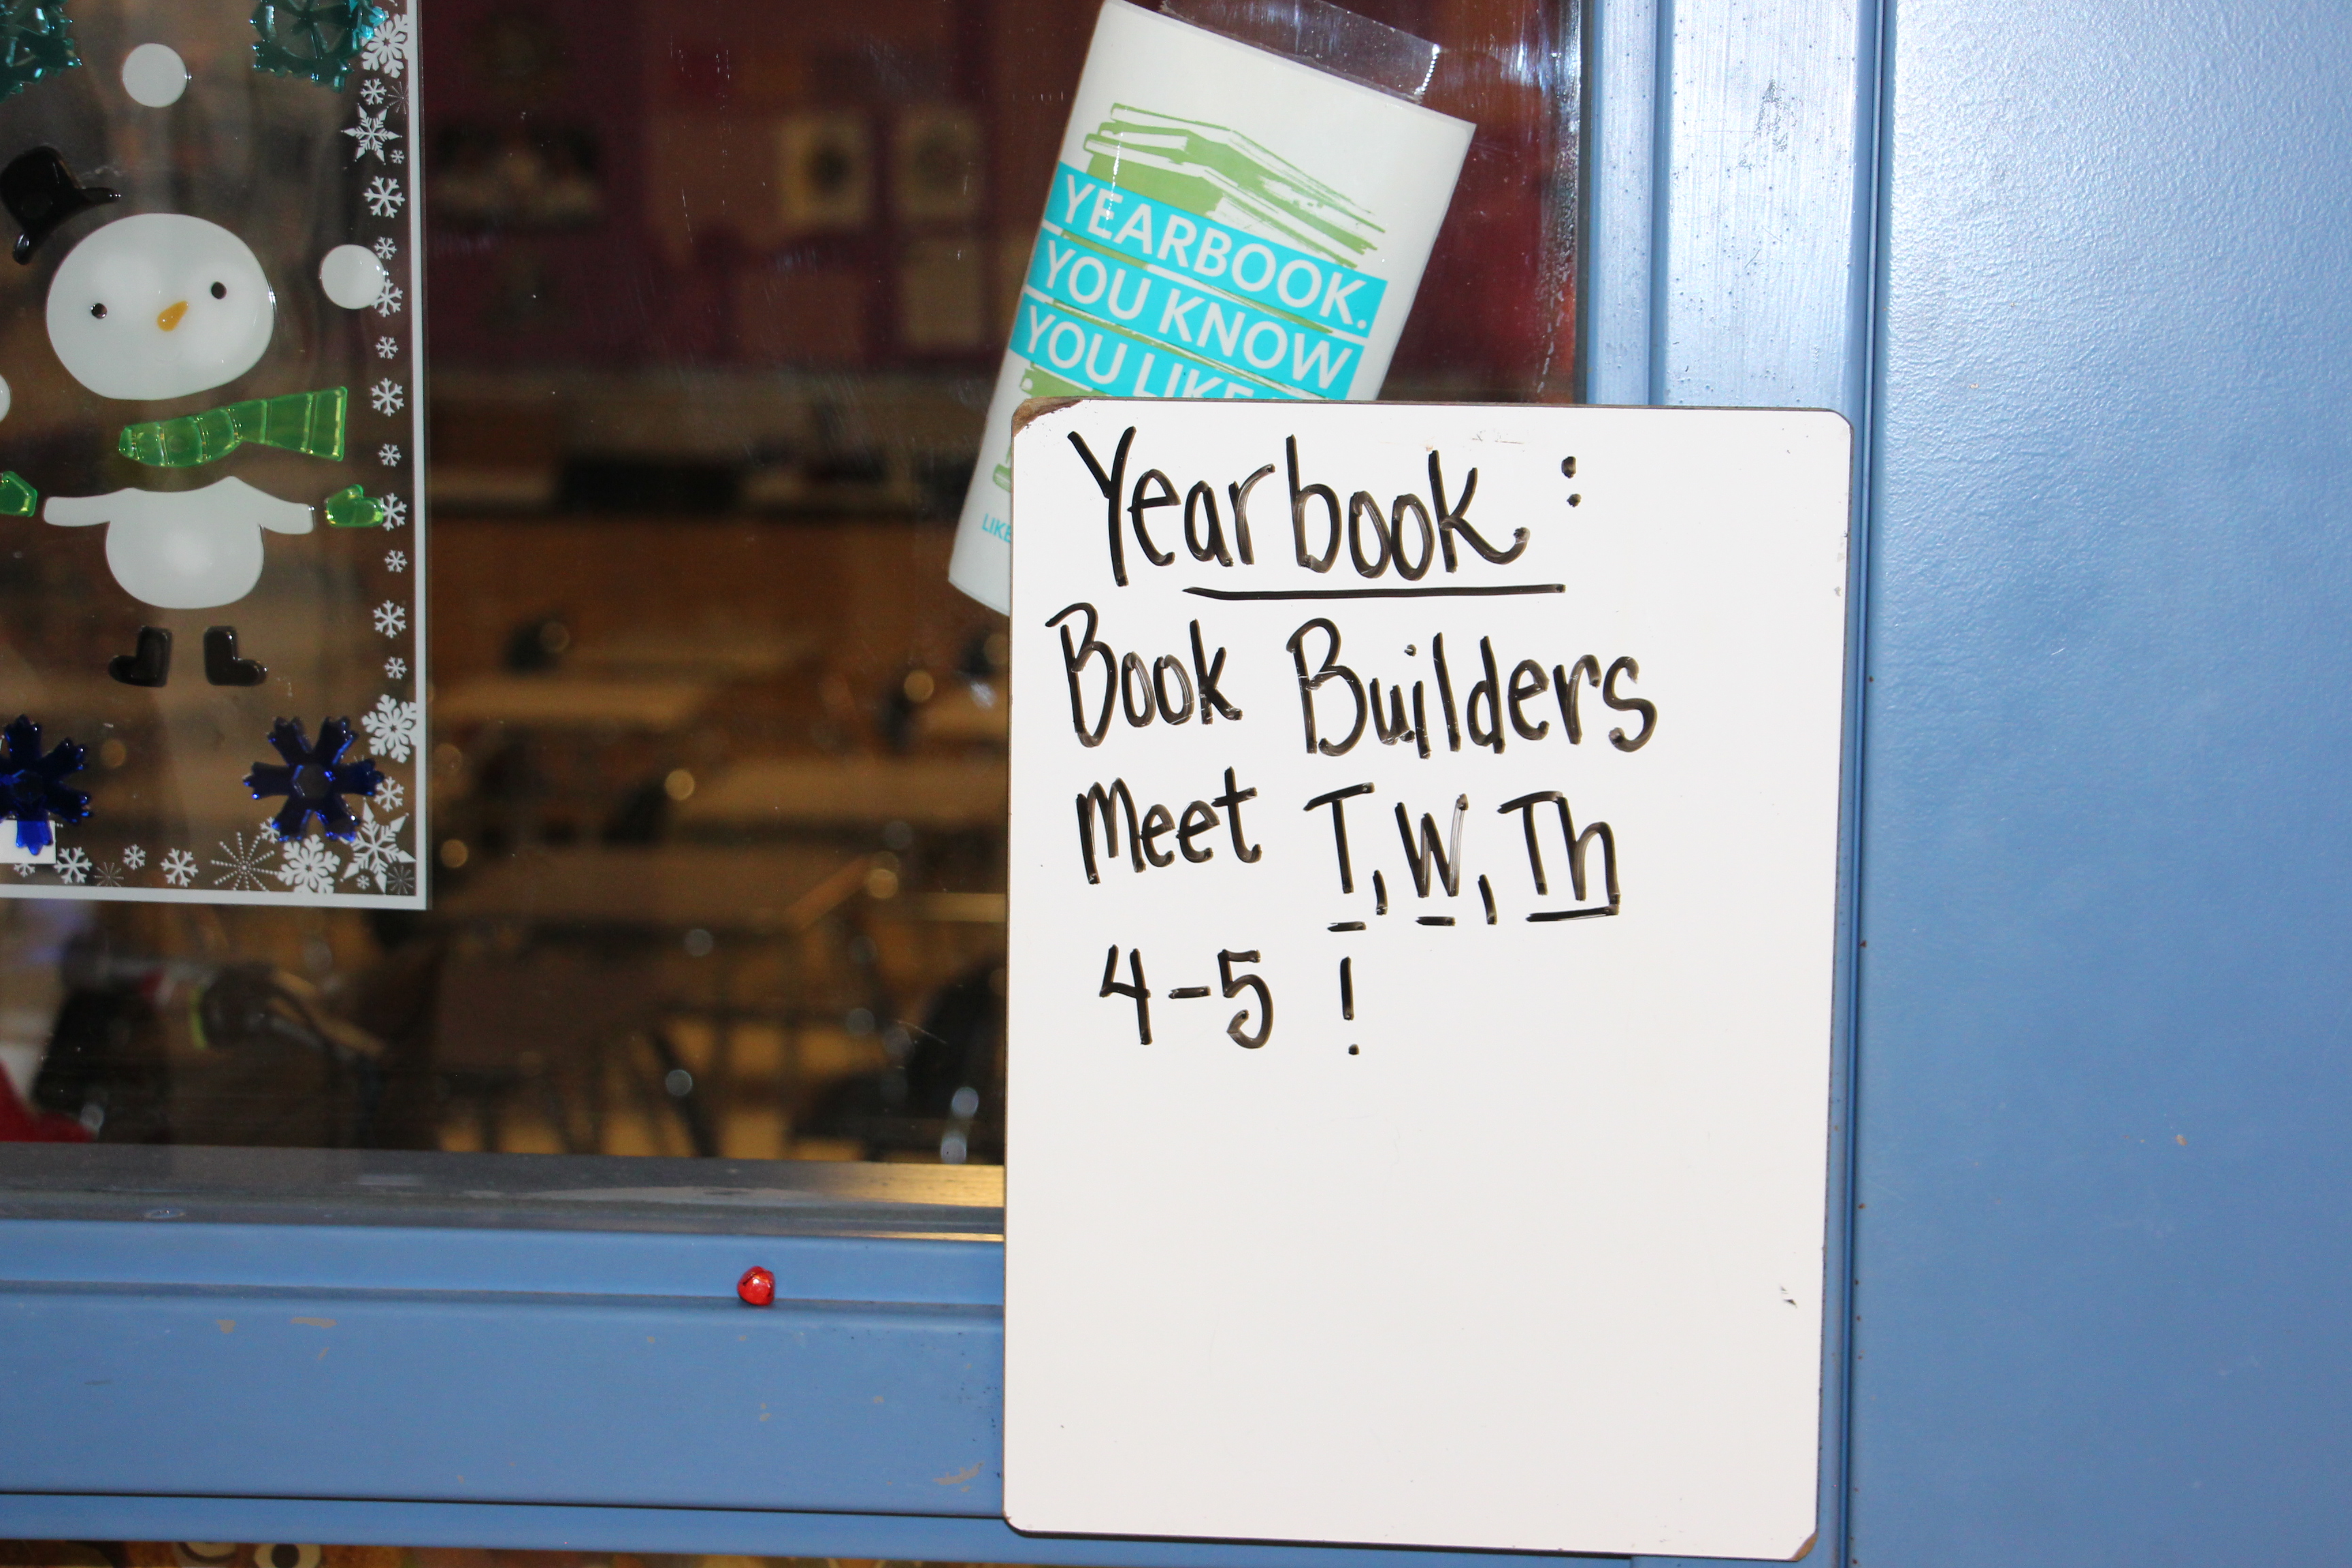 YEARBOOK.
YOU KNOW
YOU LIKE
LIKE
Yearbook:
Book Builders
Meet T, W, Th
4-5 !